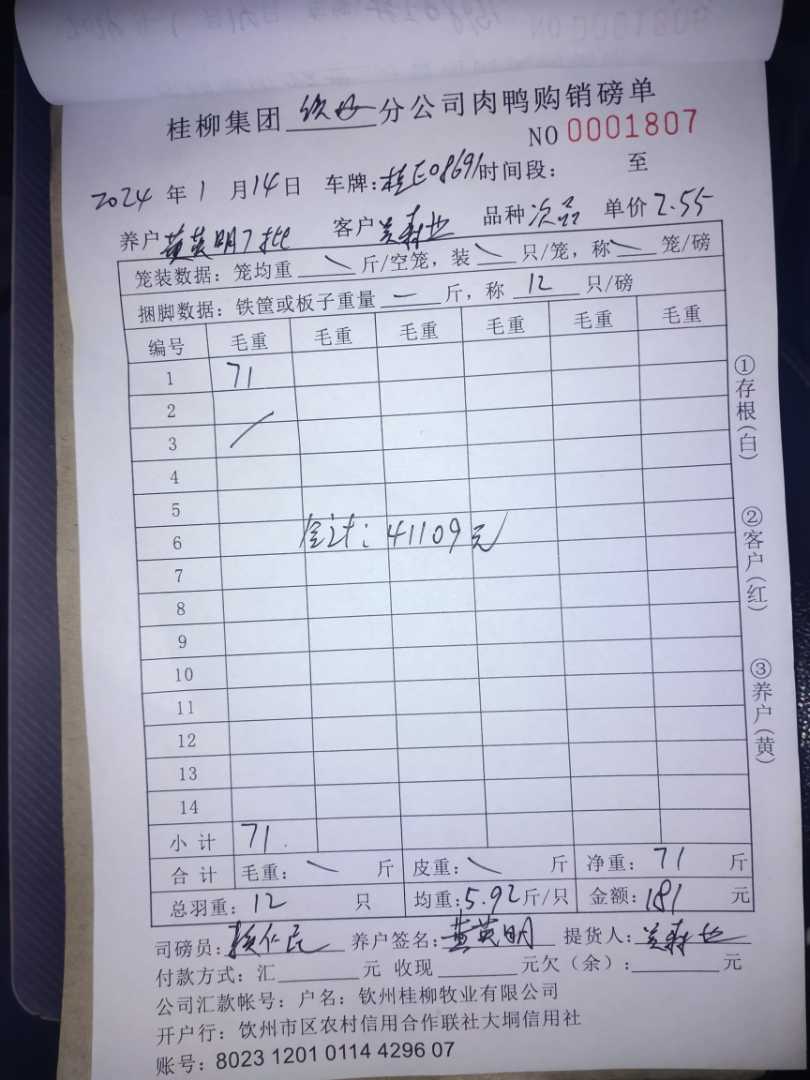 桂柳集团 钦州 分公司肉鸭购销磅单
NO 0001807
2024 年 1 月 14 日 车牌: 桂E08691 时间段: 至
养户 黄英明7批 客户 品种 次品 单价 2.55
笼装数据: 笼均重 \ 斤/空笼, 装 \ 只/笼, 称 \ 笼/磅
捆脚数据: 铁筐或板子重量 一 斤, 称 12 只/磅
编号 毛重 毛重 毛重 毛重 毛重 毛重
1 71
2
3
4
5
6 合计: 41109元
7
8
9
10
11
12
13
14
小计 71
合计 毛重: \ 斤 皮重: \ 斤 净重: 71 斤
总羽重: 12 只 均重: 5.92 斤/只 金额: 181 元
司磅员: 养户签名: 黄英明 提货人:
付款方式: 汇 元 收现 元欠(余): 元
公司汇款帐号: 户名: 钦州桂柳牧业有限公司
开户行: 钦州市区农村信用合作联社大垌信用社
账号: 8023 1201 0114 4296 07
①存根(白)
②客户(红)
③养户(黄)